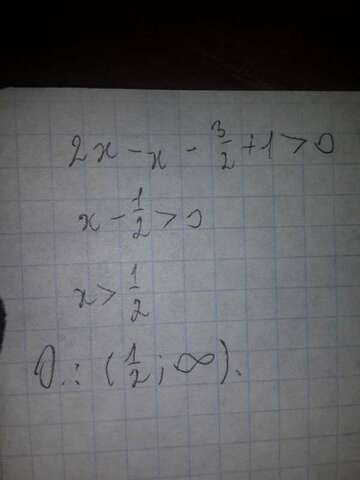 2x - x - 3/2 + 1 > 0
x - 1/2 > 0
x > 1/2
O.: (1/2; ∞).